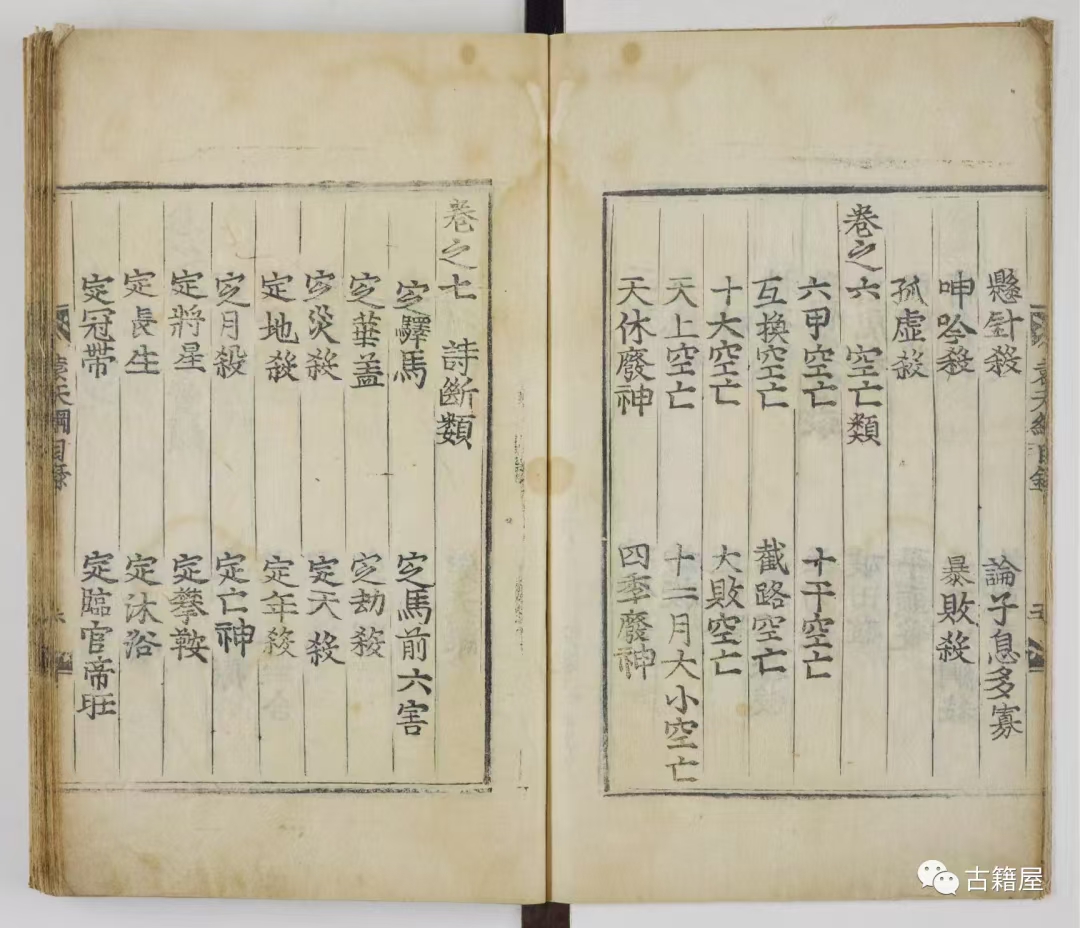 懸針殺 論子息多寡
呻吟殺 暴敗殺
孤虛殺
卷之六 空亡類
六甲空亡 十干空亡
互換空亡 截路空亡
十大空亡 大敗空亡
天上空亡 十二月大小空亡
天休廢神 四季廢神
卷之七 詩斷類
定驛馬 定馬前六害
定華蓋 定劫殺
定災殺 定天殺
定地殺 定年殺
定月殺 定亡神
定將星 定攀鞍
定長生 定沐浴
定冠帶 定臨官帝旺
袁天綱目錄
古籍屋